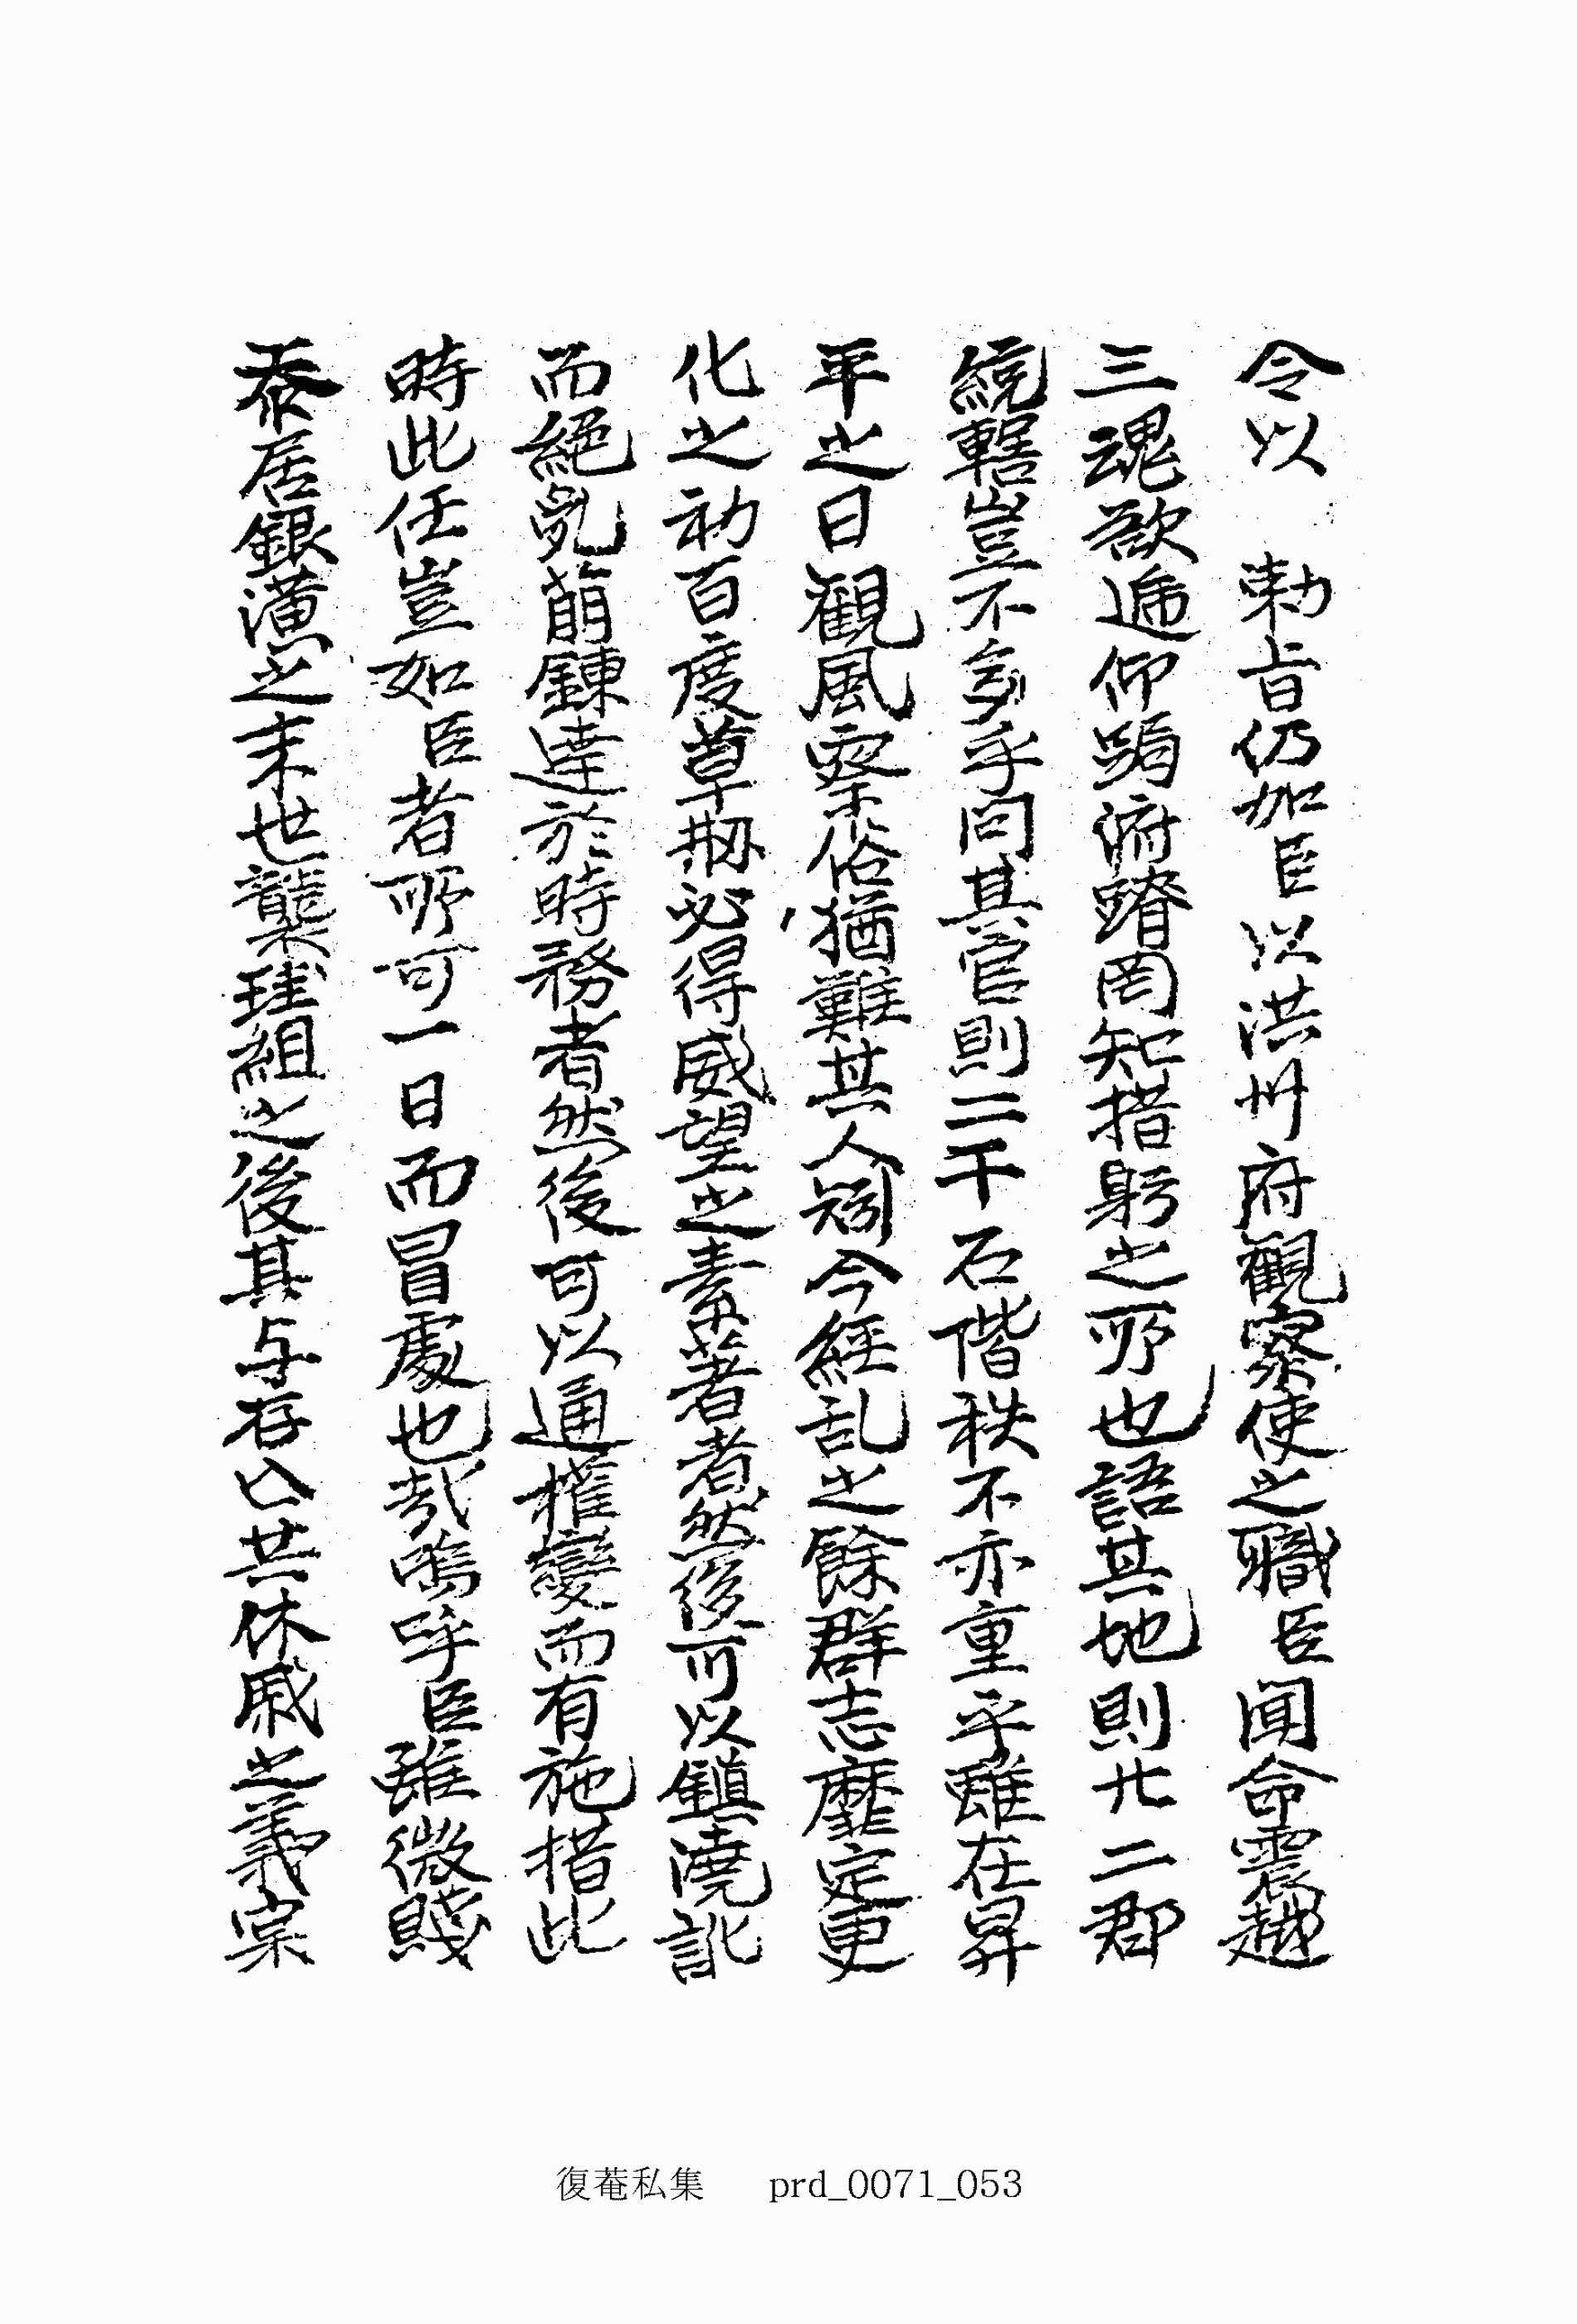 令以 勅旨仍加臣以洪州府觀察使之職臣聞命震越
三魂欲遁仰跼俯蹐罔知措躬之所也語其地則廿二郡
統轄豈不多乎問其官則二千石階秩不亦重乎雖在昇
平之日觀風察俗猶難其人矧今經乱之餘群志靡定更
化之初百度草刱必得威望之素著者然後可以鎮澆訛
而絕亂萠鍊達於時務者然後可以通權變而有施措此
時此任豈如臣者所可一日而冒處也哉嗚呼臣雖微賤
忝居銀潢之末世襲珪組之後其与存亾共休戚之義宲
復菴私集 prd_0071_053